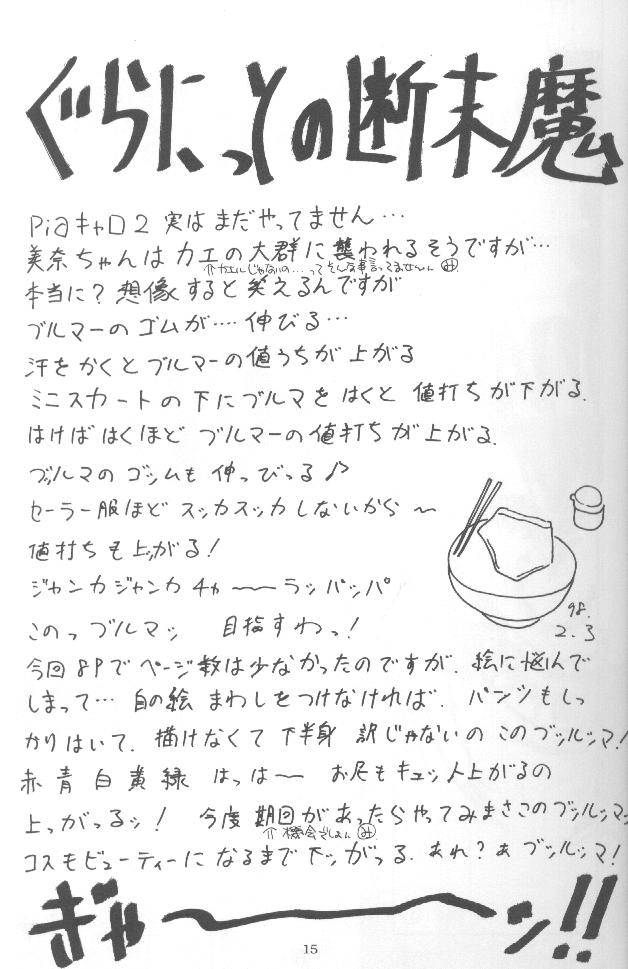 ぐらにっとの断末魔
Piaキャロ2 実はまだやってません…
美奈ちゃんはカエの大群に襲われるそうですが…
⇑カエルじゃないの…ってそんな事言ってませんん
本当に?想像すると笑えるんですが
ブルマーのゴムが‥‥伸びる…
汗をかくとブルマーの値うちが上がる
ミニスカートの下にブルマをはくと値打ちが下がる.
はけばはくほどブルマーの値打ちが上がる.
ブッルマのゴッムも伸っびっる♪
セーラー服ほどスッカスッカしないから〜
値打ちも上ッがる!
ジャンカジャンカチャ〜〜ラッパッパ
このっブルマッ 目指すわっ!
98.
2.3
今回8Pでページ数は少なかったのですが.絵に悩んで
しまって…自の絵まわしをつけなければ.パンツもしっ
かりはいて.描けなくて下半身訳じゃないのこのブッルッマ!
赤青白黄緑 はっは〜 お尻もキュット上がるの
上っがっるッ! 今度期回があったらやってみまさこのブッルッマッ
⇑機会でしょん
コスモビューティーになるまで下ッがっる.あれ?あブッルッマ!
ぎゃ〜〜ン!!
15